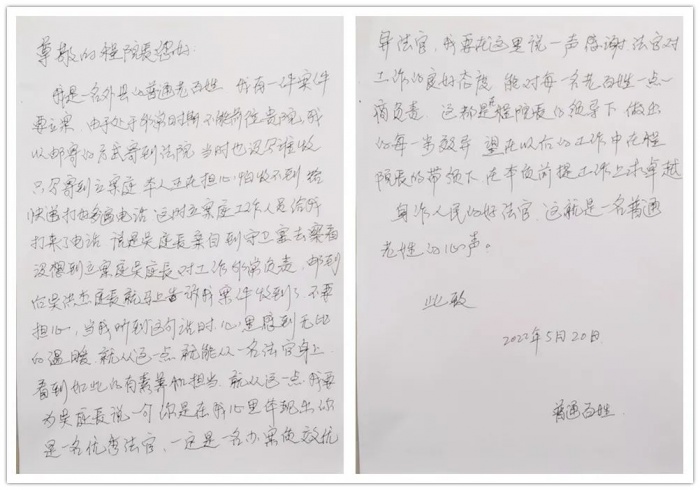 尊敬的程院长您好
我是一名外县的普通老百姓 我有一件案件
要立案 由于处于非常时期不能前往贵院 我
以邮寄的方式寄到法院 当时也没写谁收
只写寄到立案庭 本人正在担心 怕收不到 给
快递打好多遍电话 这时立案庭工作人员给我
打来了电话 说是吴庭长亲自到守卫室去察看
没想到立案庭吴庭长对工作非常负责 邮到
后吴洪杰庭长就马上告诉我案件收到了 不要
担心 当我听到这句话时 心里感到无比
的温暖 就从这一点 就能从一名法官身上
看到如此的有素养和担当 就从这一点 我要
为吴庭长说一句 你是在我心里体现出你
是一名优秀法官 一定是一名办案质效优
异法官 我要在这里说一声 感谢法官对
工作的良好态度 能对每一名老百姓一点一
滴负责 这都是程院长的领导下 做出
的每一步效异 望在以后的工作中在程
院长的带领下 在本负前提工作上求卓越
争作人民的好法官 这就是一名普通
老姓的心声。
此致
2022年5月20日
普通百姓